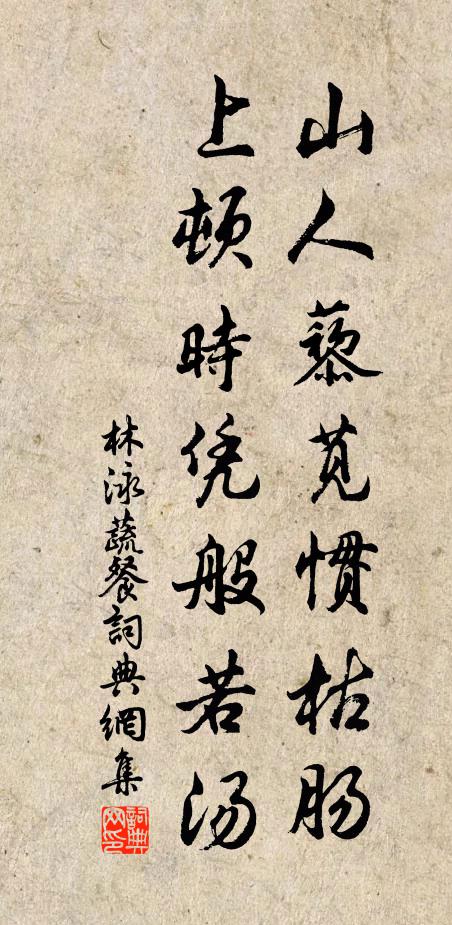 山人藜苋惯枯肠
上顿時凭般若汤
林泳蔬餐詞典網集
詞典网印